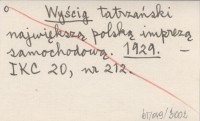 Wyścig tatrzański
największą polską imprezą
samochodową. 1929. —
IKC 20, nr 212.